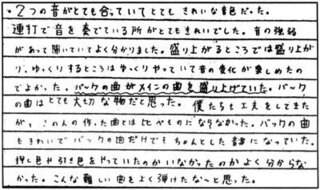 ・2つの音がとても合っていてとてもきれいな音色だった。
連打で音を奏でている所がとてもきれいでした。音の強弱
があって聞いていてよく分かりました。盛り上がるところでは盛り上が
り、ゆっくりするところはゆっくりやっていて音の変化が楽しめたの
でよかった。バックの曲がメインの曲を盛り上げていた。バック
の曲はとても大切な物だと思った。僕たちも工夫をしてきた
が、この人の作った曲とはくらべものにならなかった。バックの曲
もきれいでバックの曲だけでもちゃんとした音楽になっていた。
押し色や引き色をやっていたのかいなかったのかよく分からな
かった。こんな難しい曲をよく弾けたな〜と思った。